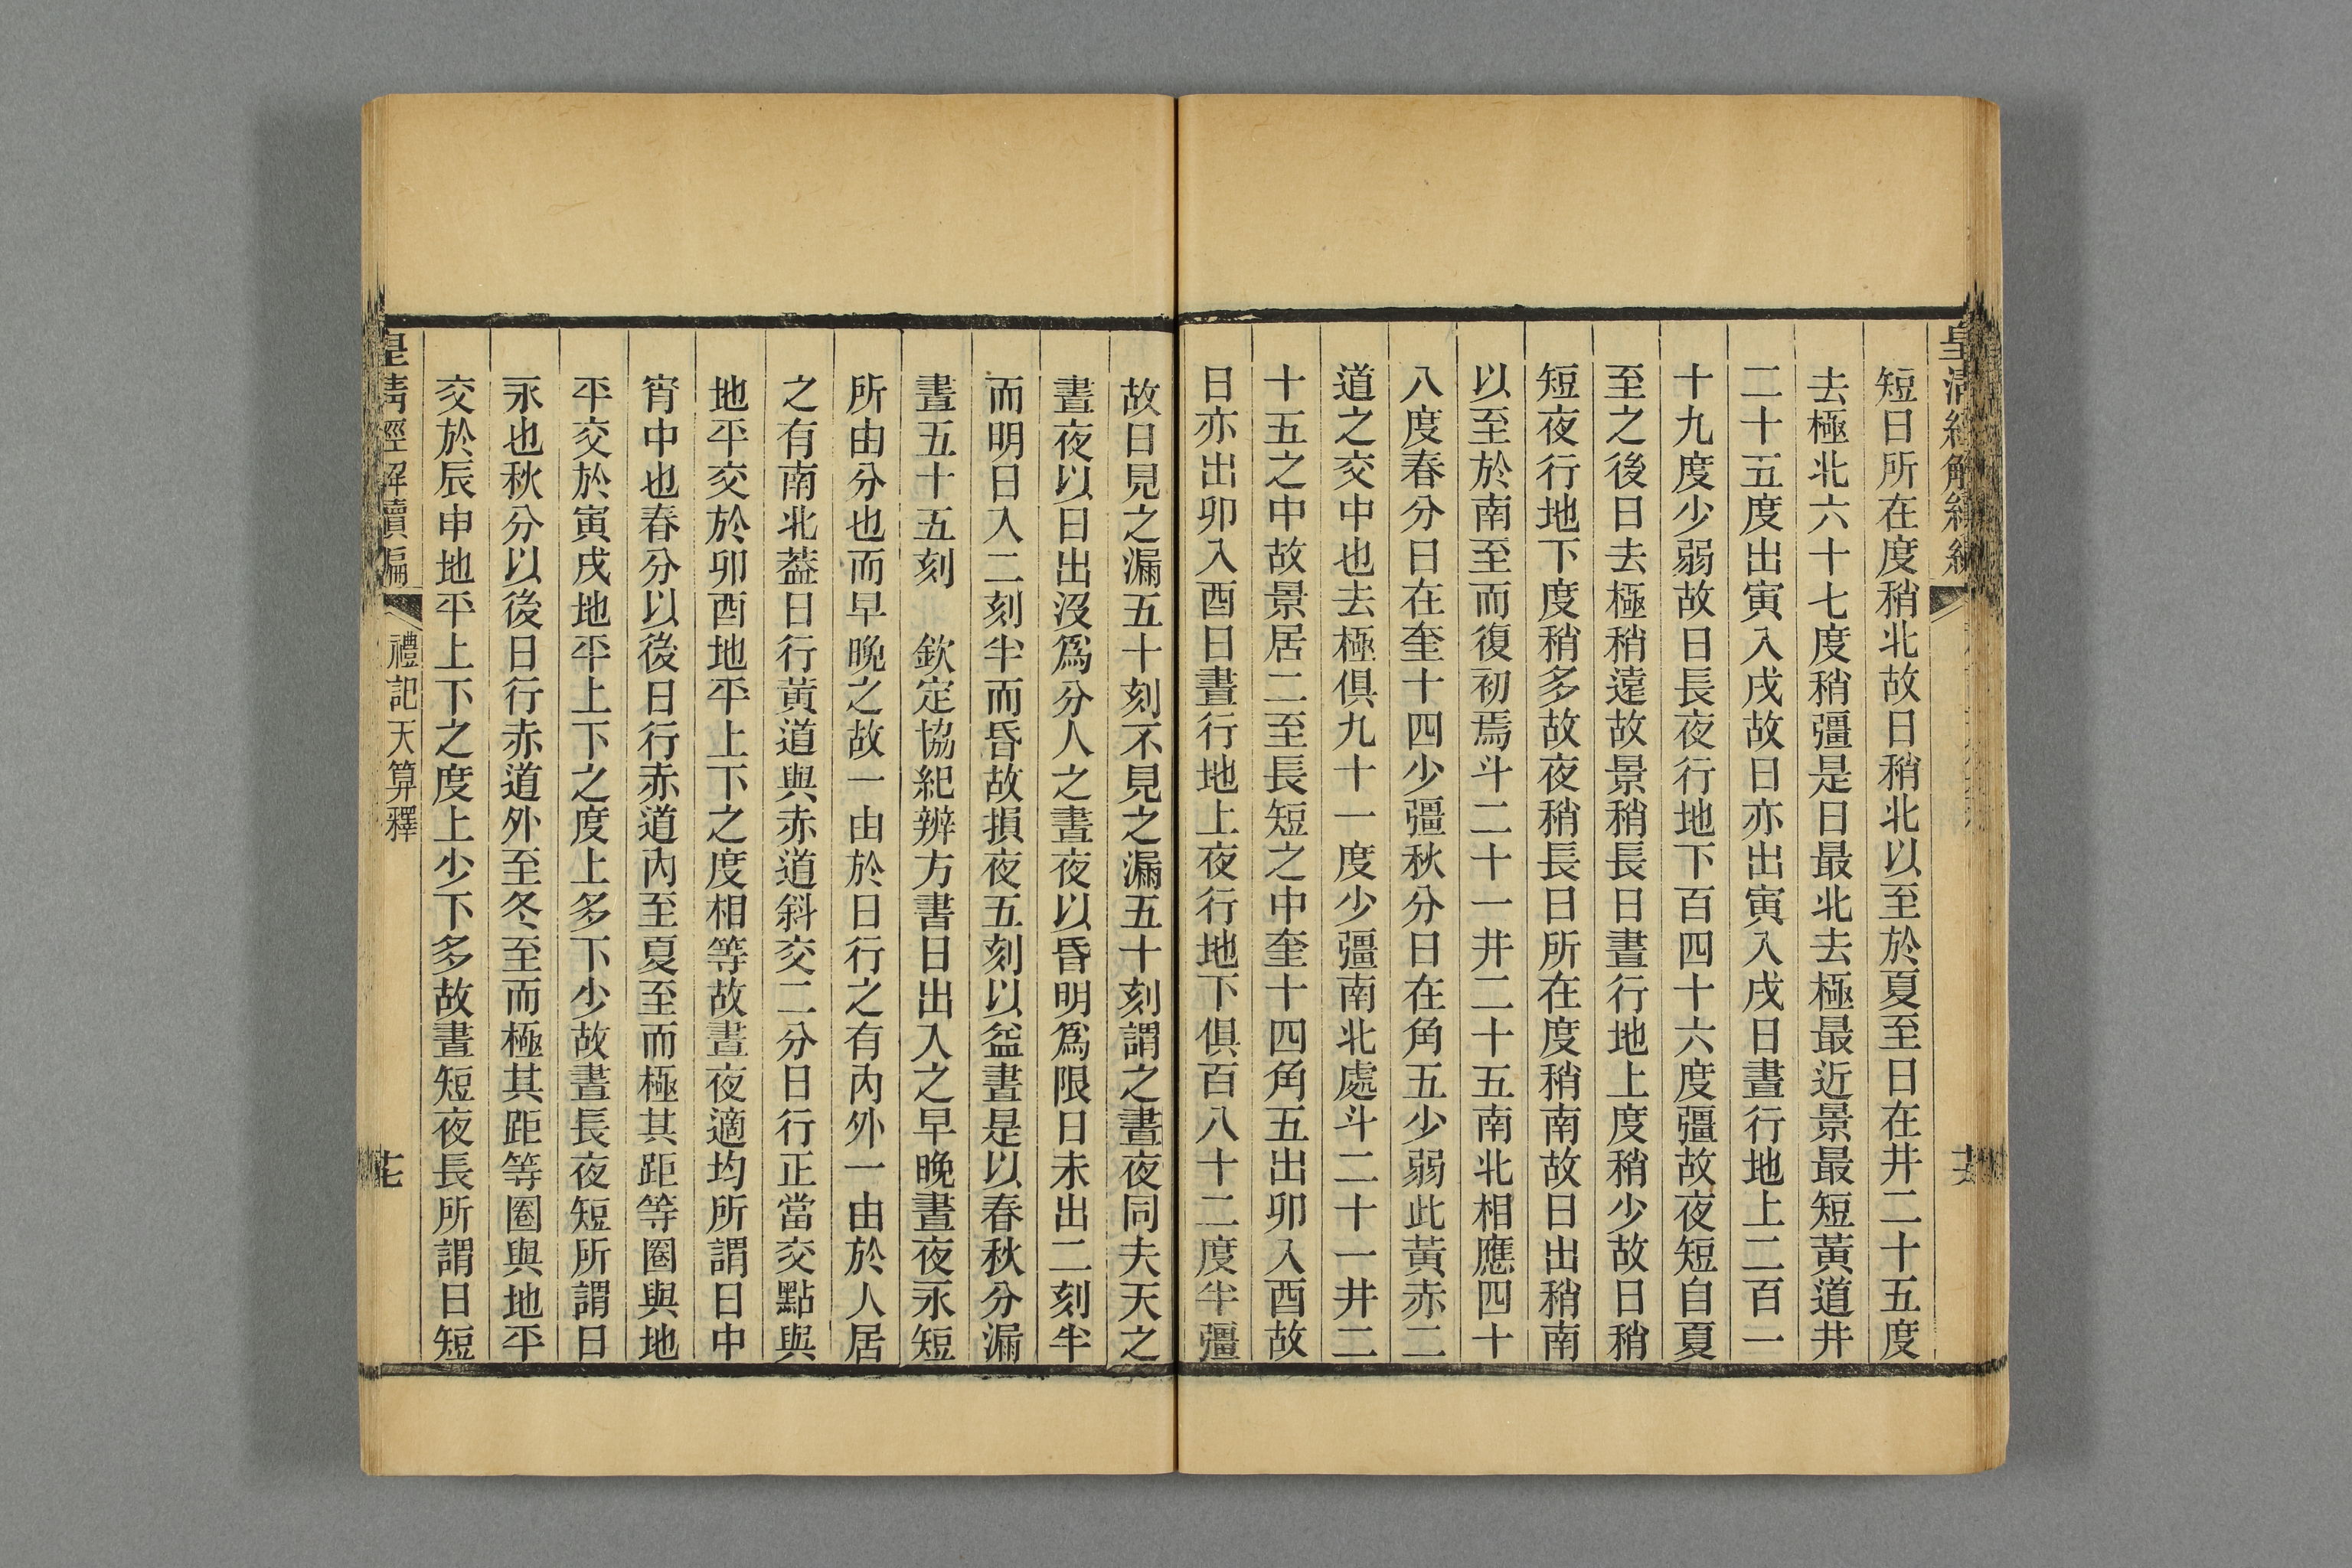 短日所在度稍北故日稍北以至於夏至日在井二十五度
去極北六十七度稍彊是日最北去極最近景最短黃道井
二十五度出寅入戌故日亦出寅入戌日晝行地上二百一
十九度少弱故日長夜行地下百四十六度彊故夜短自夏
至之後日去極稍遠故景稍長日晝行地上度稍少故日稍
短夜行地下度稍多故夜稍長日所在度稍南故日出稍南
以至於南至而復初焉斗二十一井二十五南北相應四十
八度春分日在奎十四少彊秋分日在角五少弱此黃赤二
道之交中也去極俱九十一度少彊南北處斗二十一井二
十五之中故景居二至長短之中奎十四角五出卯入酉故
日亦出卯入酉日晝行地上夜行地下俱百八十二度半彊
故日見之漏五十刻不見之漏五十刻謂之晝夜同夫天之
晝夜以日出沒爲分人之晝夜以昏明爲限日未出二刻半
而明日入二刻半而昏故損夜五刻以益晝是以春秋分漏
晝五十五刻　欽定協紀辨方書日出入之早晚晝夜永短
所由分也而早晚之故一由於日行之有內外一由於人居
之有南北葢日行黃道與赤道斜交二分日行正當交點與
地平交於卯酉地平上下之度相等故晝夜適均所謂日中
宵中也春分以後日行赤道內至夏至而極其距等圈與地
平交於寅戌地平上下之度上多下少故晝長夜短所謂日
永也秋分以後日行赤道外至冬至而極其距等圈與地平
交於辰申地平上下之度上少下多故晝短夜長所謂日短
皇清經解續編
禮記天算釋